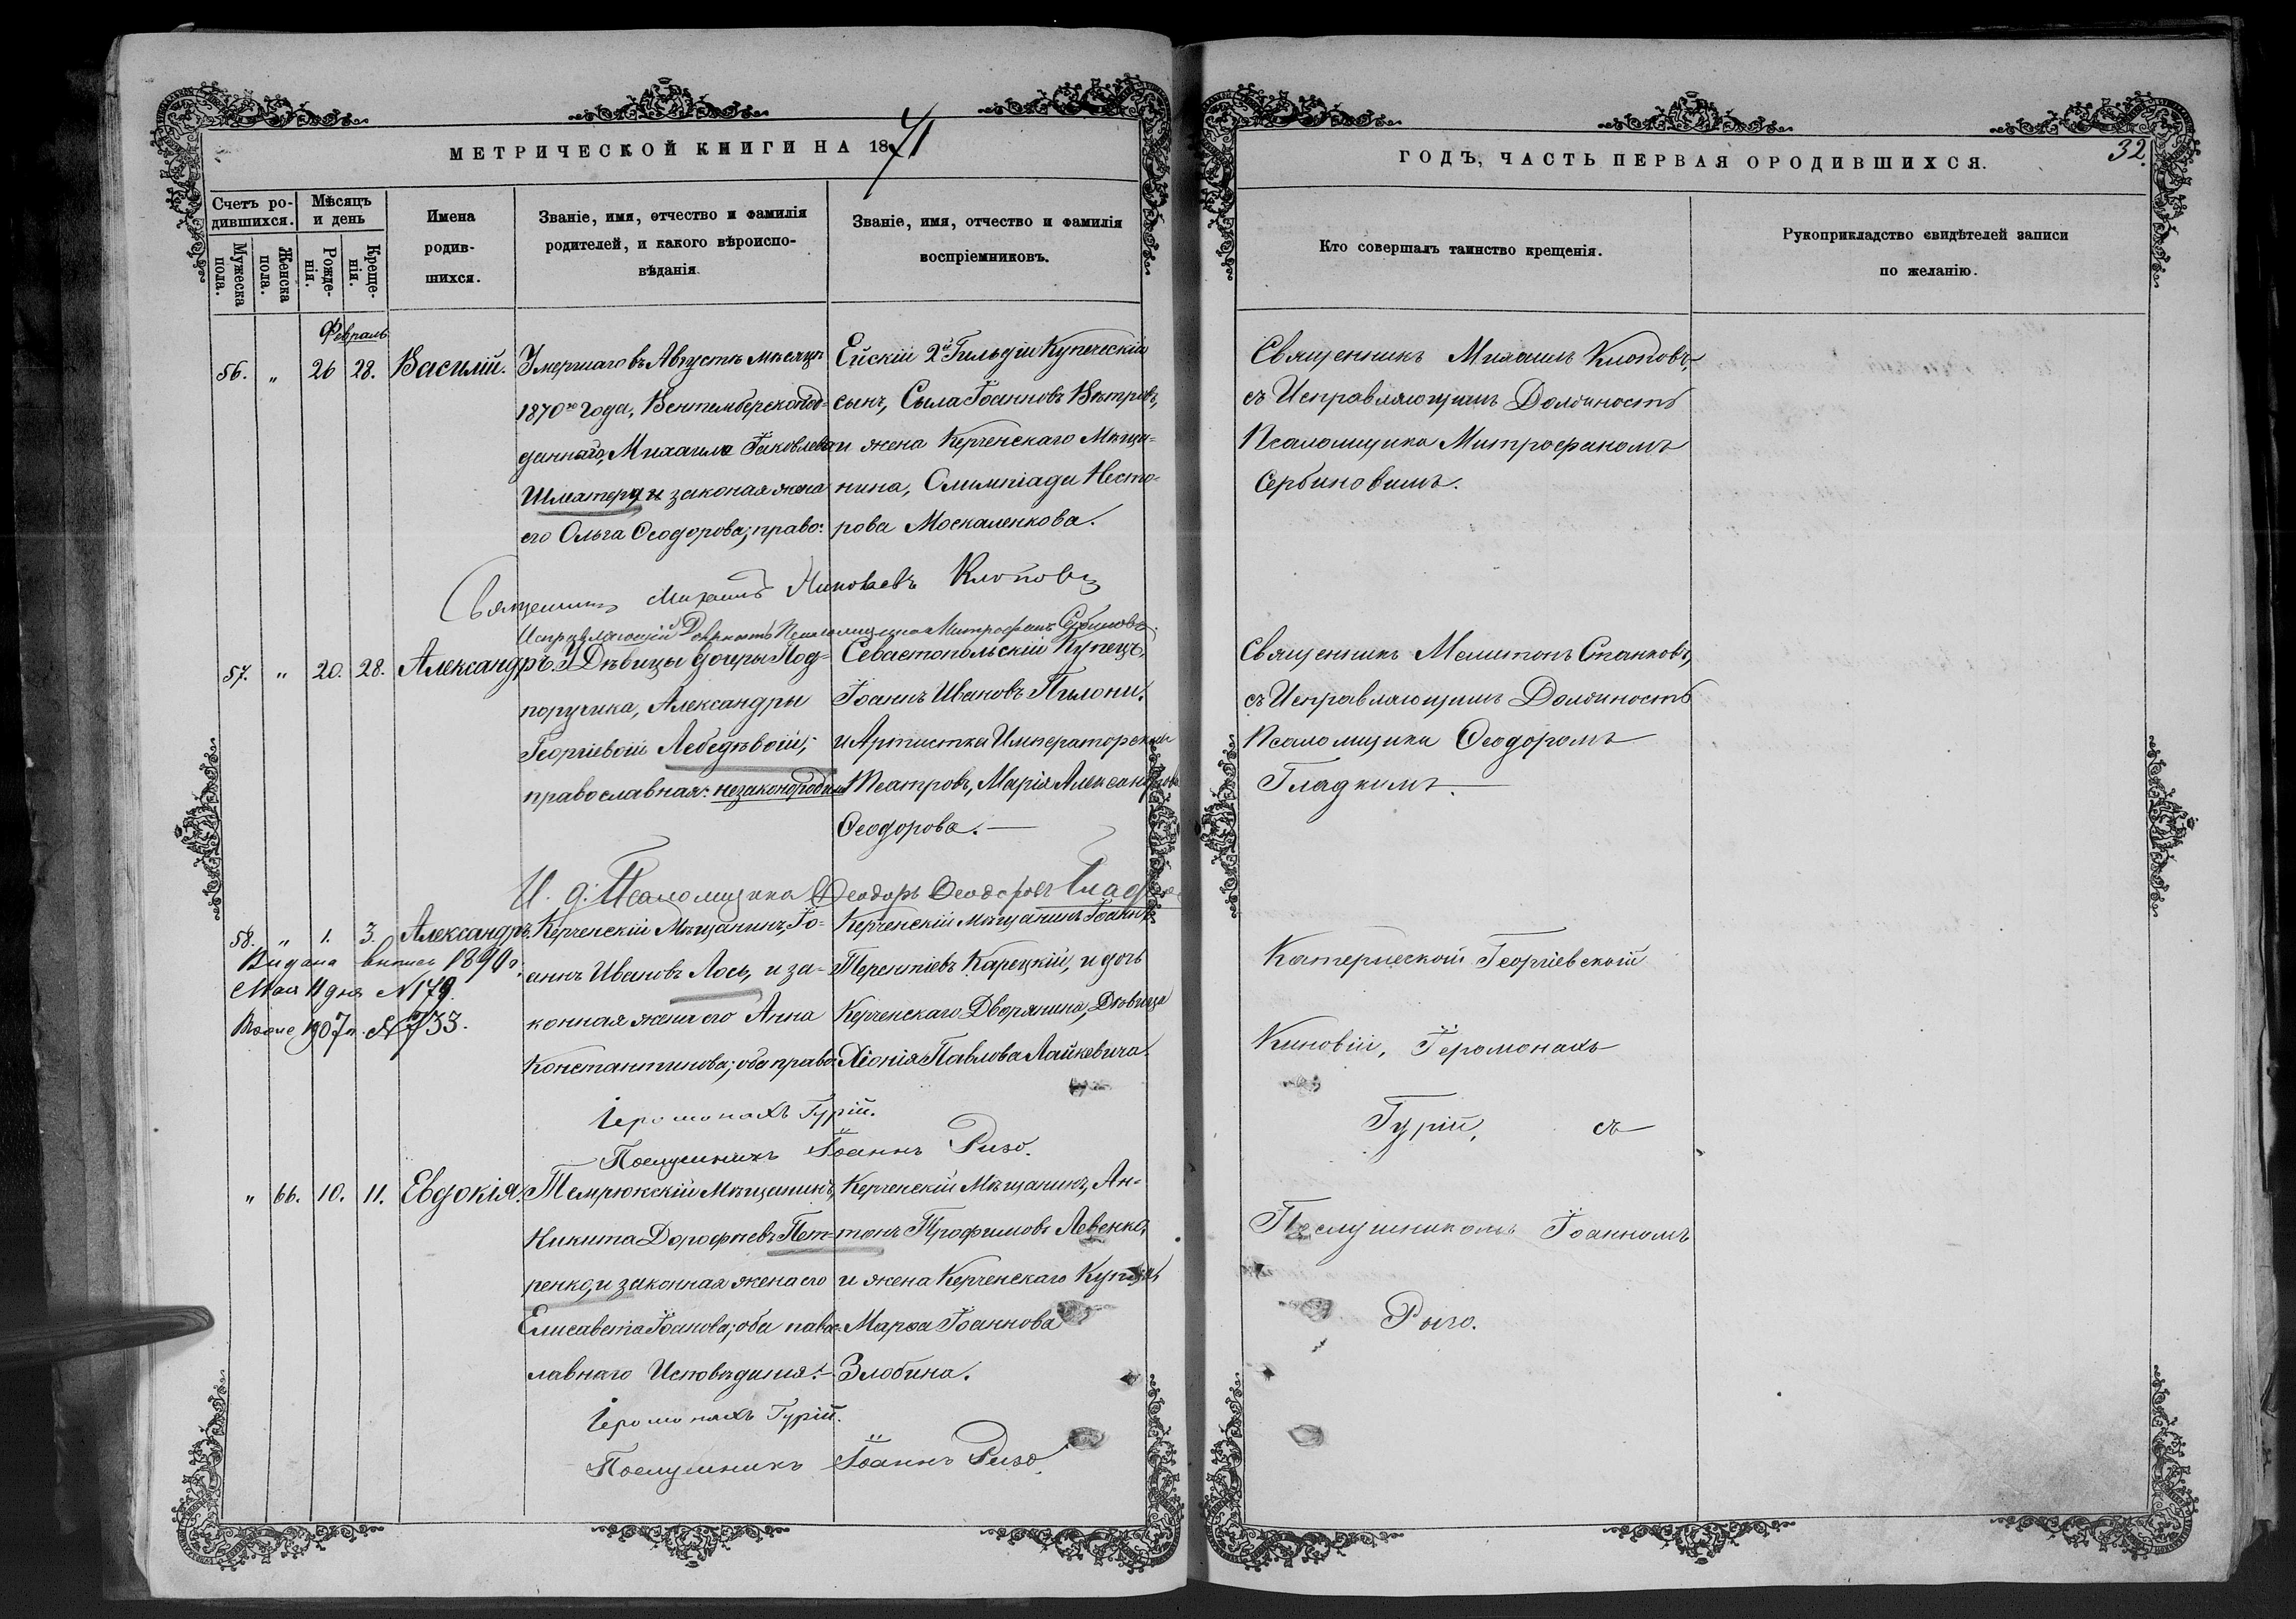 МЕТРИЧЕСКОЙ КНИГИ НА 1871
Счетъ ро-
дившихся.
Мѣсяцъ
и день
Мужеска
пола.
Женска
пола.
Рожде-
нія.
Креще-
нія.
Имена
родив-
шихся.
Званіе, имя, отчество и фамилія
родителей, и какого вѣроиспо-
вѣданія.
Званіе, имя, отчество и фамилія
воспріемниковъ.
Февраль
56. " 26 28. Василій.
Умершаго въ Августѣ мѣсяцѣ
1870го Года,
даннаго, Михаила Іаковлева
Шлеатера и законая жена
его Ольга Ѳеодорова; право:
Ейскій 2й Гильдіи Купеческій
сынъ, Сыла Іоанновъ Вѣтровъ,
и жена Керченскаго Мѣща-
нина, Олимпіада Несто-
рова Москаленкова.
Священникъ Михаилъ Николаевъ Клоповъ
Исправляющій Должность Псаломщика Митрофанъ Сербиновъ.
57. " 20. 28. Александръ.
У Дѣвицы дочери Под-
поручика, Александры
Георгіевой Лебедѣвой;
православная: незаконорожден
Севастопольскій Купецъ,
Іоаннъ Ивановъ Пилони.
и Артистка Императорскихъ
Театровъ, Марія Александрова
Ѳеодорова.
И. д. Псаломщика Ѳеодоръ Ѳеодоровъ Гладкій
58. " 1. 3. Александръ.
Выдана выпись 1890 г.
Мая 11 дня № 179.
1907 г. № 733.
Керченскій Мѣщанинъ, Іо-
аннъ Ивановъ Лось, и за-
конная жена его Анна
Константинова; оба право:
Керченскій мѣщанинъ Іоаннъ
Терентіевъ Карецкій, и дочь
Керченскаго Дворянина, Дѣвица
Хіонія Павлова Лайкевича.
Іеромонахъ Гурій.
Послушникъ Іоаннъ Ризо.
" 66. 10. 11. Евдокія.
Темрюкскій Мѣщанинъ,
Никита Дорофѣевъ Пет-
ренко, и законная жена его
Елисавета Іоанова; оба павос-
лавнаго Исповѣданія.
Керченскій Мѣщанинъ, Ан-
тонъ Трофимовъ Левенко,
и жена Керченскаго Купца
Марѳа Іоаннова
Злобина.
Іеромонахъ Гурій.
Послушникъ Іоаннъ Ризо.
ГОДЪ, ЧАСТЬ ПЕРВАЯ О РОДИВШИХСЯ.
32.
Кто совершалъ таинство крещенія.
Рукоприкладство свидѣтелей записи
по желанію.
Священникъ Михаилъ Клоповъ,
съ Исправляющимъ Должность
Псаломщика Митрофаномъ
Сербиновымъ.
Священникъ Мелитонъ Станковъ,
съ Исправляющимъ Должность
Псаломщика Ѳеодоромъ
Гладкимъ.
Катерлеской Георгіевской
Киновіи, Іеромонахъ
Гурій, съ
Послушникомъ Іоанномъ
Ризо.